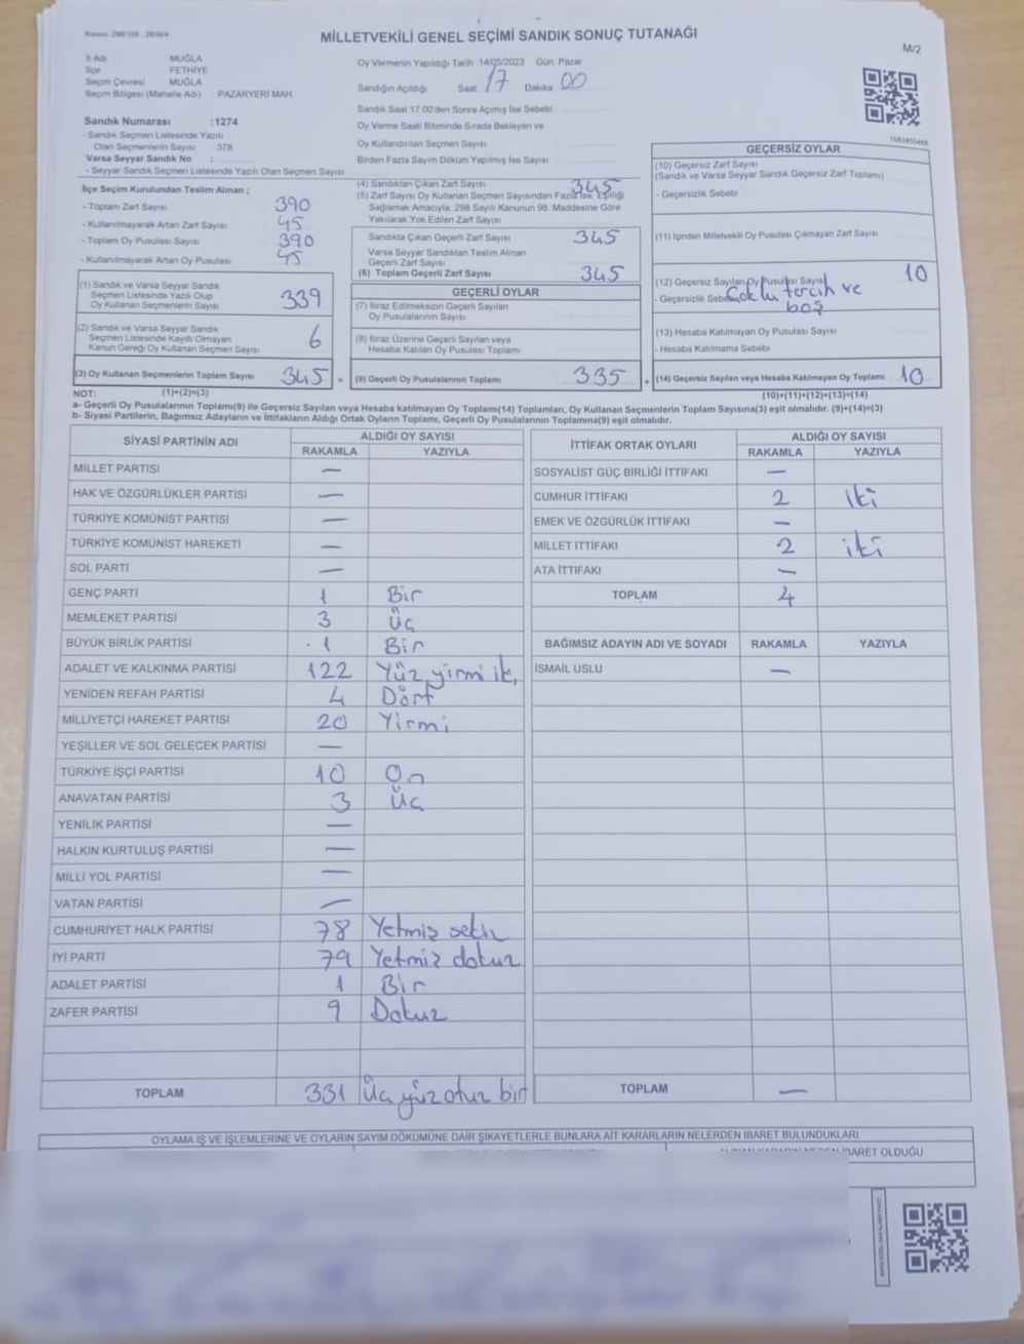 MİLLETVEKİLİ GENEL SEÇİMİ SANDIK SONUÇ TUTANAĞI
M/2
İl Adı MUĞLA
İlçe FETHİYE
Seçim Çevresi MUĞLA
Seçim Bölgesi (Mahalle Adı) : PAZARYERİ MAH.
Oy Vermenin Yapıldığı Tarih 14/05/2023 Gün Pazar
Sandığın Açıldığı Saat 17 Dakika 00
Sandık Saat 17.00'den Sonra Açılmış İse Sebebi
Oy Verme Saati Bitiminde Sırada Bekleyen ve
Oy Kullandırılan Seçmen Sayısı
Birden Fazla Sayım Döküm Yapılmış İse Sayısı
Sandık Numarası :1274
- Sandık Seçmen Listesinde Yazılı
Olan Seçmenlerin Sayısı 378
Varsa Seyyar Sandık No :
- Seyyar Sandık Seçmen Listesinde Yazılı Olan Seçmen Sayısı
İlçe Seçim Kurulundan Teslim Alınan ;
- Toplam Zarf Sayısı 390
- Kullanılmayarak Artan Zarf Sayısı 45
- Toplam Oy Pusulası Sayısı 390
- Kullanılmayarak Artan Oy Pusulası 45
(1) Sandık ve Varsa Seyyar Sandık
Seçmen Listesinde Yazılı Olup
Oy Kullanan Seçmenlerin Sayısı 339
(2) Sandık ve Varsa Seyyar Sandık
Seçmen Listesinde Kayıtlı Olmayan
Kanun Gereği Oy Kullanan Seçmen Sayısı 6
(3) Oy Kullanan Seçmenlerin Toplam Sayısı 345
(1)+(2)=(3)
(4) Sandıktan Çıkan Zarf Sayısı 345
(5) Zarf Sayısı Oy Kullanan Seçmen Sayısından Fazla İse, Eşitliği
Sağlamak Amacıyla, 298 Sayılı Kanunun 98. Maddesine Göre
Yakılarak Yok Edilen Zarf Sayısı
Sandıkta Çıkan Geçerli Zarf Sayısı 345
Varsa Seyyar Sandıktan Teslim Alınan
Geçerli Zarf Sayısı
(6) Toplam Geçerli Zarf Sayısı 345
GEÇERLİ OYLAR
(7) İtiraz Edilmeksizin Geçerli Sayılan
Oy Pusulalarının Sayısı
(8) İtiraz Üzerine Geçerli Sayılan veya
Hesaba Katılan Oy Pusulası Toplamı
(9) Geçerli Oy Pusulalarının Toplamı 335
GEÇERSİZ OYLAR
(10) Geçersiz Zarf Sayısı
(Sandık ve Varsa Seyyar Sandık Geçersiz Zarf Toplamı)
- Geçersizlik Sebebi
(11) İçinden Milletvekili Oy Pusulası Çıkmayan Zarf Sayısı
(12) Geçersiz Sayılan Oy Pusulası Sayısı 10
- Geçersizlik Sebebi Çoklu tercih ve
boş
(13) Hesaba Katılmayan Oy Pusulası Sayısı
- Hesaba Katılmama Sebebi
(14) Geçersiz Sayılan veya Hesaba Katılmayan Oy Toplamı 10
(10)+(11)+(12)+(13)=(14)
NOT:
a- Geçerli Oy Pusulalarının Toplamı(9) ile Geçersiz Sayılan veya Hesaba katılmayan Oy Toplamı(14) Toplamları, Oy Kullanan Seçmenlerin Toplam Sayısına(3) eşit olmalıdır. (9)+(14)=(3)
b- Siyasi Partilerin, Bağımsız Adayların ve İttifakların Aldığı Ortak Oyların Toplamı, Geçerli Oy Pusulalarının Toplamına(9) eşit olmalıdır.
SİYASİ PARTİNİN ADI ALDIĞI OY SAYISI
RAKAMLA YAZIYLA
MİLLET PARTİSİ —
HAK VE ÖZGÜRLÜKLER PARTİSİ —
TÜRKİYE KOMÜNİST PARTİSİ —
TÜRKİYE KOMÜNİST HAREKETİ —
SOL PARTİ —
GENÇ PARTİ 1 Bir
MEMLEKET PARTİSİ 3 Üç
BÜYÜK BİRLİK PARTİSİ 1 Bir
ADALET VE KALKINMA PARTİSİ 122 Yüz yirmi iki
YENİDEN REFAH PARTİSİ 4 Dört
MİLLİYETÇİ HAREKET PARTİSİ 20 Yirmi
YEŞİLLER VE SOL GELECEK PARTİSİ —
TÜRKİYE İŞÇİ PARTİSİ 10 On
ANAVATAN PARTİSİ 3 Üç
YENİLİK PARTİSİ —
HALKIN KURTULUŞ PARTİSİ —
MİLLİ YOL PARTİSİ —
VATAN PARTİSİ —
CUMHURİYET HALK PARTİSİ 78 Yetmiş sekiz
İYİ PARTİ 79 Yetmiş dokuz
ADALET PARTİSİ 1 Bir
ZAFER PARTİSİ 9 Dokuz
TOPLAM 331 Üç yüz otuz bir
İTTİFAK ORTAK OYLARI ALDIĞI OY SAYISI
RAKAMLA YAZIYLA
SOSYALİST GÜÇ BİRLİĞİ İTTİFAKI —
CUMHUR İTTİFAKI 2 iki
EMEK VE ÖZGÜRLÜK İTTİFAKI —
MİLLET İTTİFAKI 2 iki
ATA İTTİFAKI —
TOPLAM 4
BAĞIMSIZ ADAYIN ADI VE SOYADI RAKAMLA YAZIYLA
İSMAİL USLU —
TOPLAM —
OYLAMA İŞ VE İŞLEMLERİNE VE OYLARIN SAYIM DÖKÜMÜNE DAİR ŞİKAYETLERLE BUNLARA AİT KARARLARIN NELERDEN İBARET BULUNDUKLARI
İBARET OLDUĞU